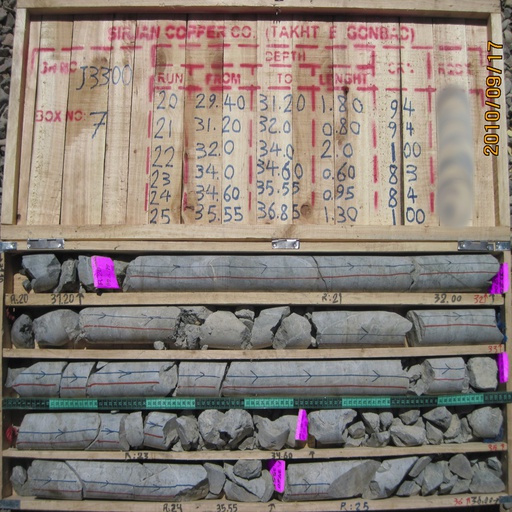 SIRJAN COPPER CO. (TAKHT E GONBAD)
DEPTH
J3300
RUN FROM TO LENGHT
BOX NO: 7
20 29.40 31.20 1.80 94
21 31.20 32.0 0.80 94
22 32.0 34.0 2.0 100
23 34.0 34.60 0.60 83
24 34.60 35.55 0.95 84
25 35.55 36.85 1.30 100
2010/09/17
R:20 31.20↑ R:21 32.00
R:23 34.60
R:24 35.55 ↑ R:25